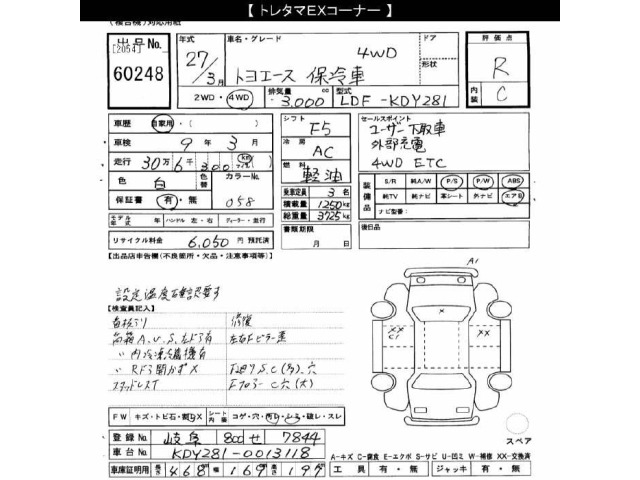 【 トレタマEXコーナー 】
(複合機)対応用紙
出品No.
[2054]
60248
年式
27/3月
車名・グレード
4WD
トヨエース 保冷車
ドア
形状
評価点
R
内装
C
2WD・4WD
排気量
3,000 cc
型式
LDF-KDY281
車歴 自家用・( )
車検 9年 3月
走行 30万6千300 km マイル
色 白
色替
カラーNo.
058
保証書 有・無
シフト F5
冷房 AC
燃料 軽油
乗車定員 3名
積載量 1250kg
総重量 3725kg
セールスポイント
ユーザー下取車
外部充電
4WD ETC
装備品
S/R 純A/W P/S P/W ABS
純TV 純ナビ 革シート 外ナビ エアB
ナビ型番:
モデル年式 年 ハンドル 左・右 ディーラー・並行
書類期限
月 日
後日品
リサイクル料金 6,050円 預託済
【出品店申告欄(不良箇所・欠品・注意事項等)】
設定温度確認要す
【検査員記入】
修復
内冷凍機有
RF3開かず×
F廻りS.C(多)、穴
スタッドレスT
Fフロアー C穴(大)
A1
×
××
C1
××
スペア
FW キズ・トビ石・割・X
シート内張 コゲ・穴・汚れ・シミ・破レ・スレ
登録No. 岐阜 800 せ 7844
車台No. KDY281-0013118
車庫証明用 長さ 468 幅 169 高さ 197
A-キズ C-腐食 E-エクボ S-サビ U-凹ミ W-補修 XX-交換済
工具 有・無 ジャッキ 有・無